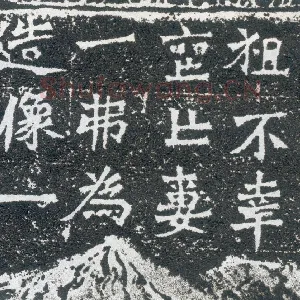 狙不幸
亡妻
一弗為
造像一